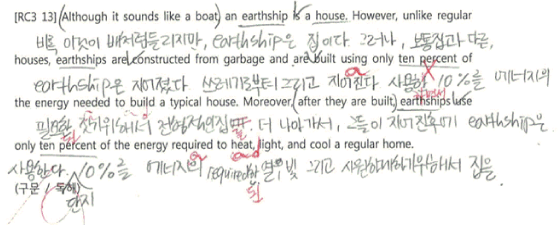 [RC3 13] (Although it sounds like a boat) an earthship is a house. However, unlike regular
비록 이것이 배처럼들리지만, earthship은 집이다. 그러나, 보통집과 다른,
houses, earthships are constructed from garbage and are built using only ten percent of
earthship은 지어졌다 쓰레기로부터 그리고 지어진다. 사용한 10%를 에너지의
the energy needed to build a typical house. Moreover, after they are built, earthships use
필요한 짓기위해서 전형적인집 더 나아가서, 그들이 지어진후에 earthship은
only ten percent of the energy required to heat, light, and cool a regular home.
사용한다. 10%를 에너지의 required한 열, 빛 그리고 시원하게하기위해서 집을
(구문 / 독해) 된
단지